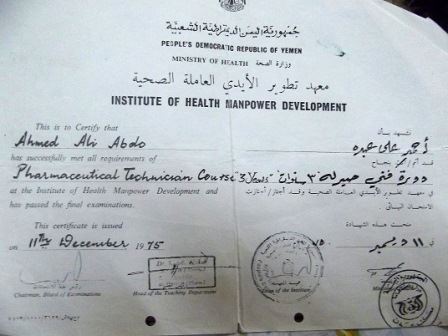 جمهورية اليمن الديمقراطية الشعبية
PEOPLE'S DEMOCRATIC REPUBLIC OF YEMEN
وزارة الصحة
MINISTRY OF HEALTH
معهد تطوير الأيدي العاملة الصحية
INSTITUTE OF HEALTH MANPOWER DEVELOPMENT
This is to Certify that
Ahmed Ali Abdo
has successfully met all requirements of
Pharmaceutical Technician Course "3 Years"
at the Institute of Health Manpower Development and
has passed the final examinations.
This certificate is issued
on 11th December 1975
Chairman, Board of Examinations
Head of the Teaching Department
نشهد بأن
أحمد علي عبده
دورة فني صيدلة "٣ سنوات"
في معهد تطوير الأيدي العاملة الصحية وقد أجتاز / أجتازت
الامتحان النهائي
منحت هذه الشهادة
في ١١ ديسمبر ٧٥